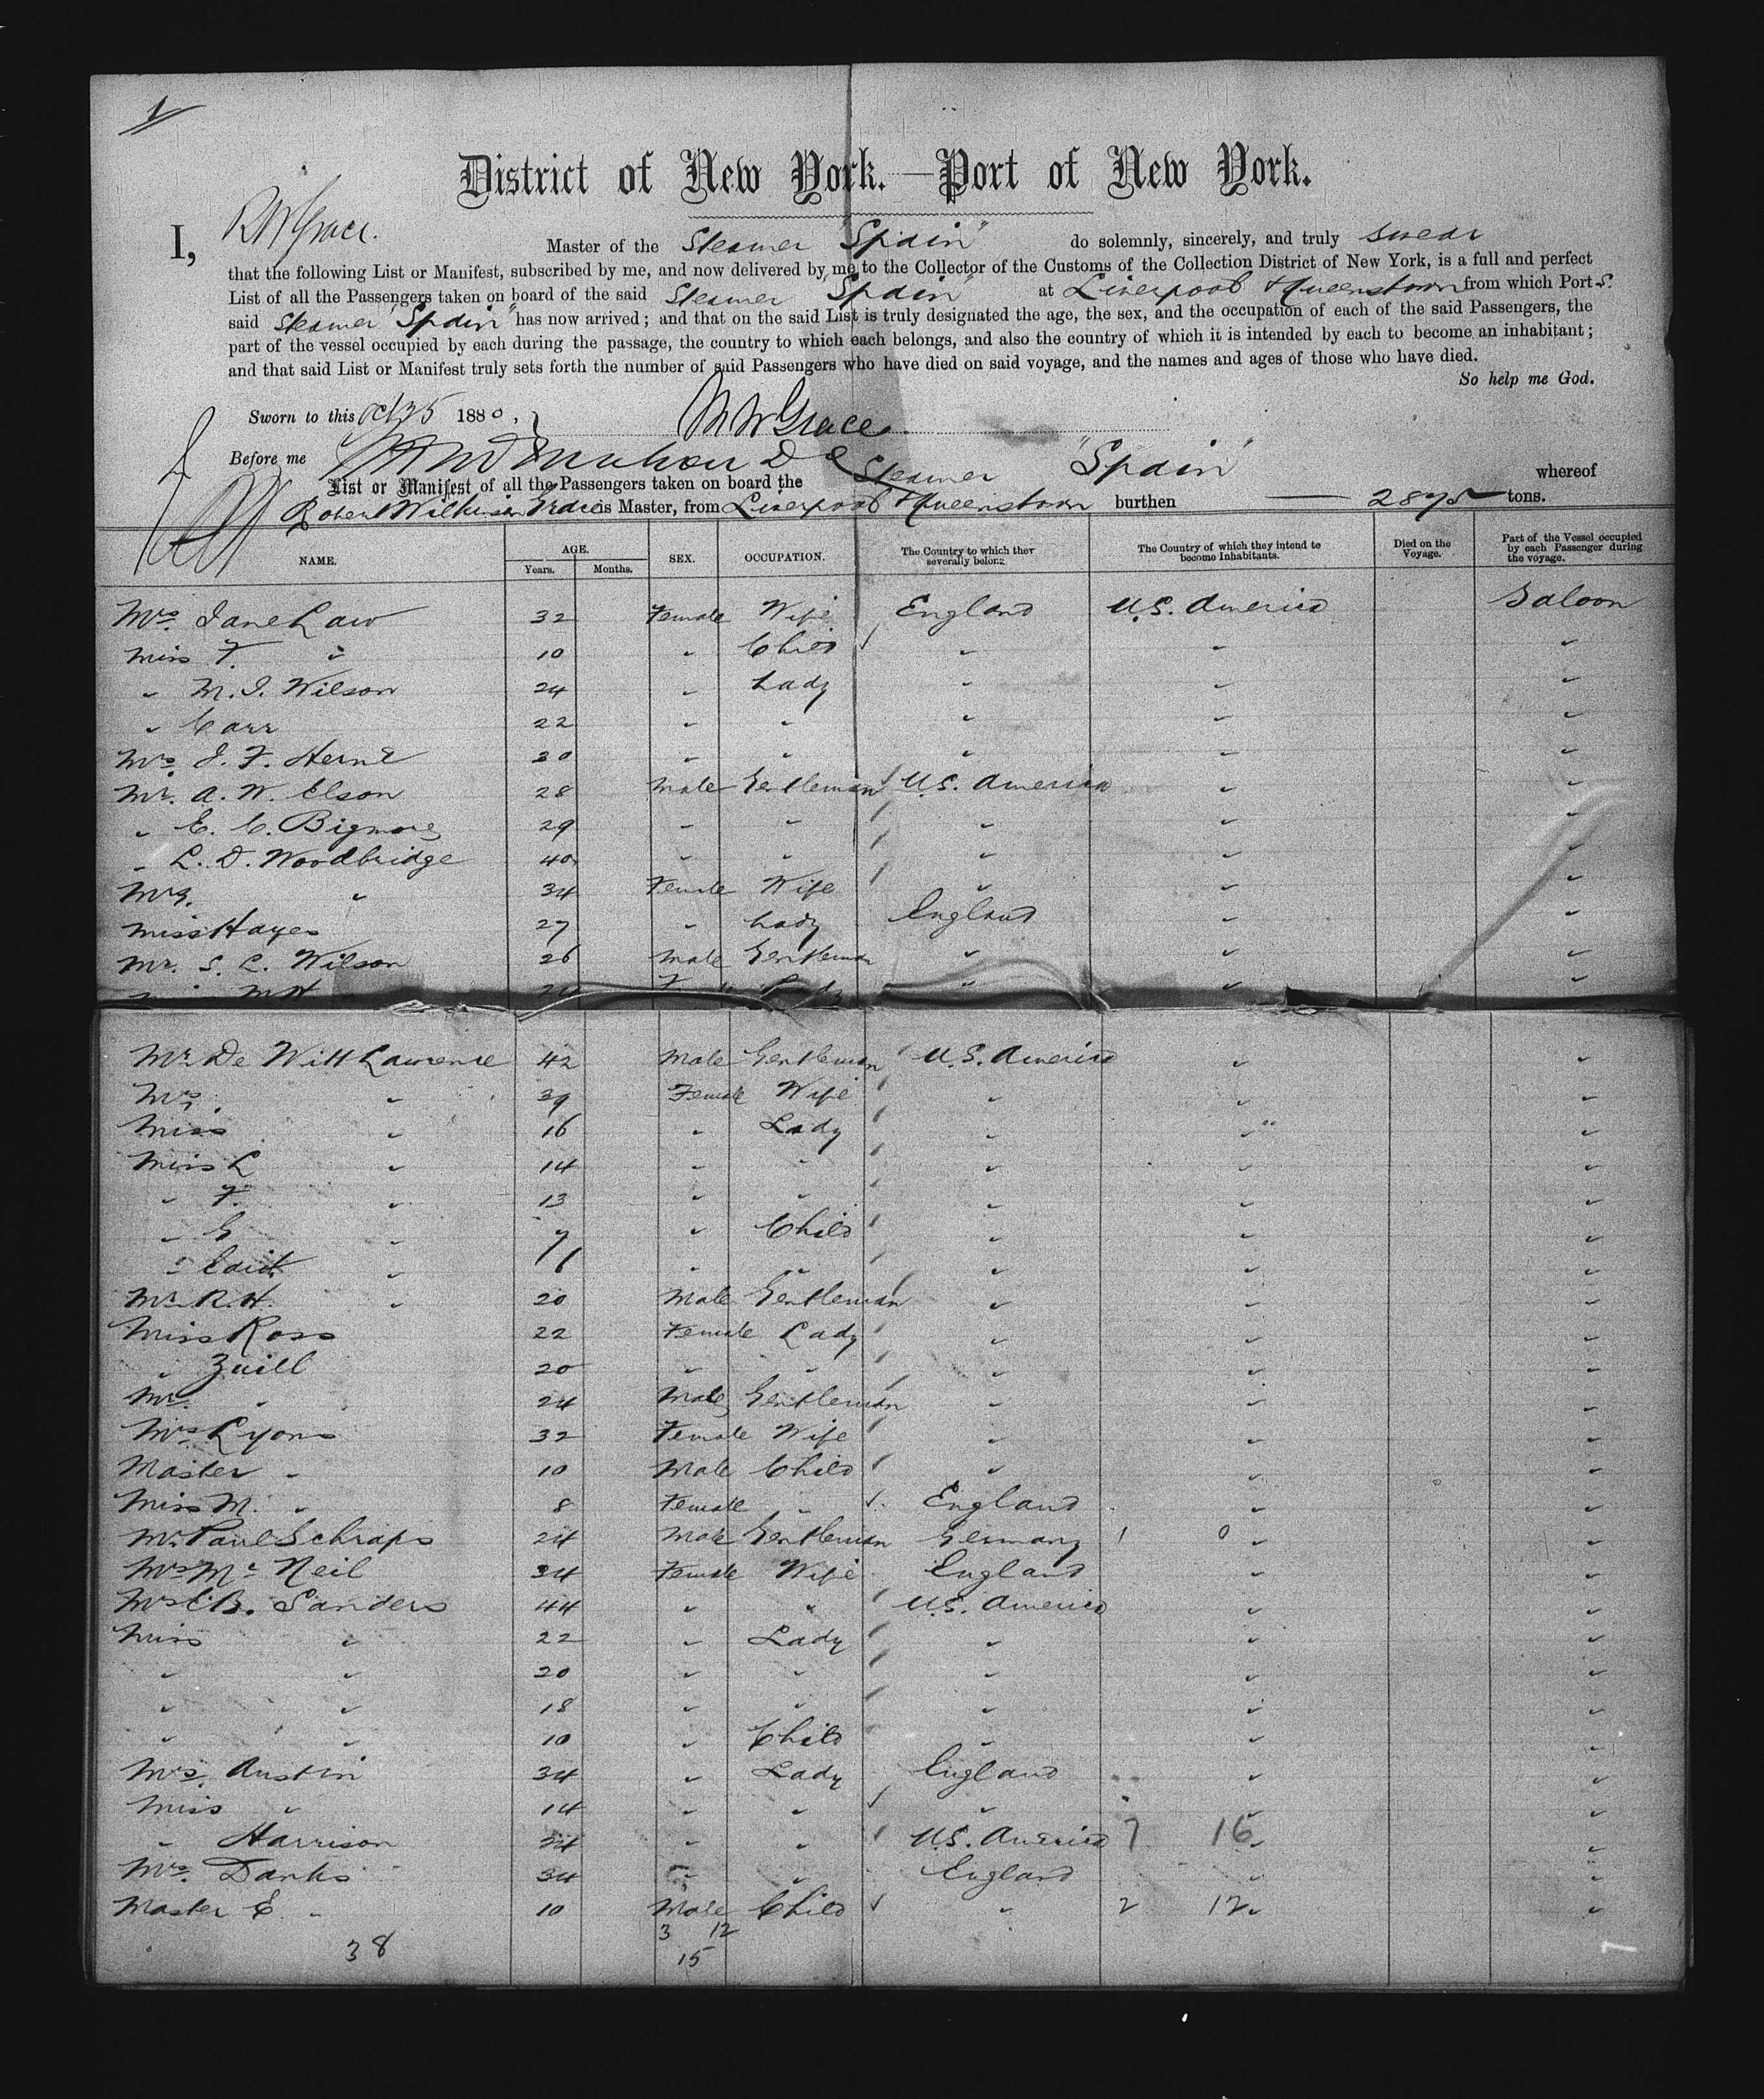 1
District of New York.—Port of New York.
I, R W Grace. Master of the Steamer "Spain" do solemnly, sincerely, and truly swear
that the following List or Manifest, subscribed by me, and now delivered by me to the Collector of the Customs of the Collection District of New York, is a full and perfect
List of all the Passengers taken on board of the said Steamer "Spain" at Liverpool & Queenstown from which Port s.
said Steamer "Spain" has now arrived; and that on the said List is truly designated the age, the sex, and the occupation of each of the said Passengers, the
part of the vessel occupied by each during the passage, the country to which each belongs, and also the country of which it is intended by each to become an inhabitant;
and that said List or Manifest truly sets forth the number of said Passengers who have died on said voyage, and the names and ages of those who have died.
So help me God.
Sworn to this Oct 25 1880, R W Grace
Before me
List or Manifest of all the Passengers taken on board the Steamer "Spain" whereof
Robert Wilkinson Grace is Master, from Liverpool & Queenstown burthen — 2875 tons.
NAME. AGE. Years. Months. SEX. OCCUPATION. The Country to which they severally belong. The Country of which they intend to become Inhabitants. Died on the Voyage. Part of the Vessel occupied by each Passenger during the voyage.
Mrs. Jane Law 32 Female Wife England U.S. America Saloon
Miss F. " 10 " Child " " "
" M. J. Wilson 24 " Lady " " "
" Carr 22 " " " " "
Mrs. J. F. Herne 30 " " " " "
Mr. A. W. Elson 28 Male Gentleman U.S. America " "
" E. C. Bigmore 29 " " " " "
" L. D. Woodbridge 40 " " " " "
Mrs. " 34 Female Wife " " "
Miss Hayes 27 " Lady England " "
Mr. S. L. Wilson 26 Male Gentleman " " "
M H " " "
Mr. De Witt Lawrence 42 Male Gentleman U.S. America " "
Mrs. " 39 Female Wife " " "
Miss " 16 " Lady " " "
Miss L " 14 " " " " "
" F. " 13 " " " " "
" G " 7 " Child " " "
" Edith " " " " " "
Mr. R. H. " 20 Male Gentleman " " "
Miss Ross 22 Female Lady " " "
" Zuill 20 " " " " "
Mr. " 24 Male Gentleman " " "
Mrs Lyons 32 Female Wife " " "
Master " 10 Male Child " " "
Miss M. " 8 Female " England " "
Mr. Paul Schraps 24 Male Gentleman Germany 1 0 " "
Mrs Mc Neil 34 Female Wife England " "
Mrs C B. Sanders 44 " " U.S. America " "
Miss " 22 " Lady " " "
" " 20 " " " " "
" " 18 " " " " "
" " 10 " Child " " "
Mrs. Austin 34 " Lady England " "
Miss " 14 " " " " "
" Harrison 24 " " U.S. America 7 16 " "
Mrs. Danks 34 " " England " "
Master E. " 10 Male Child " 2 12 " "
3 12
38 15